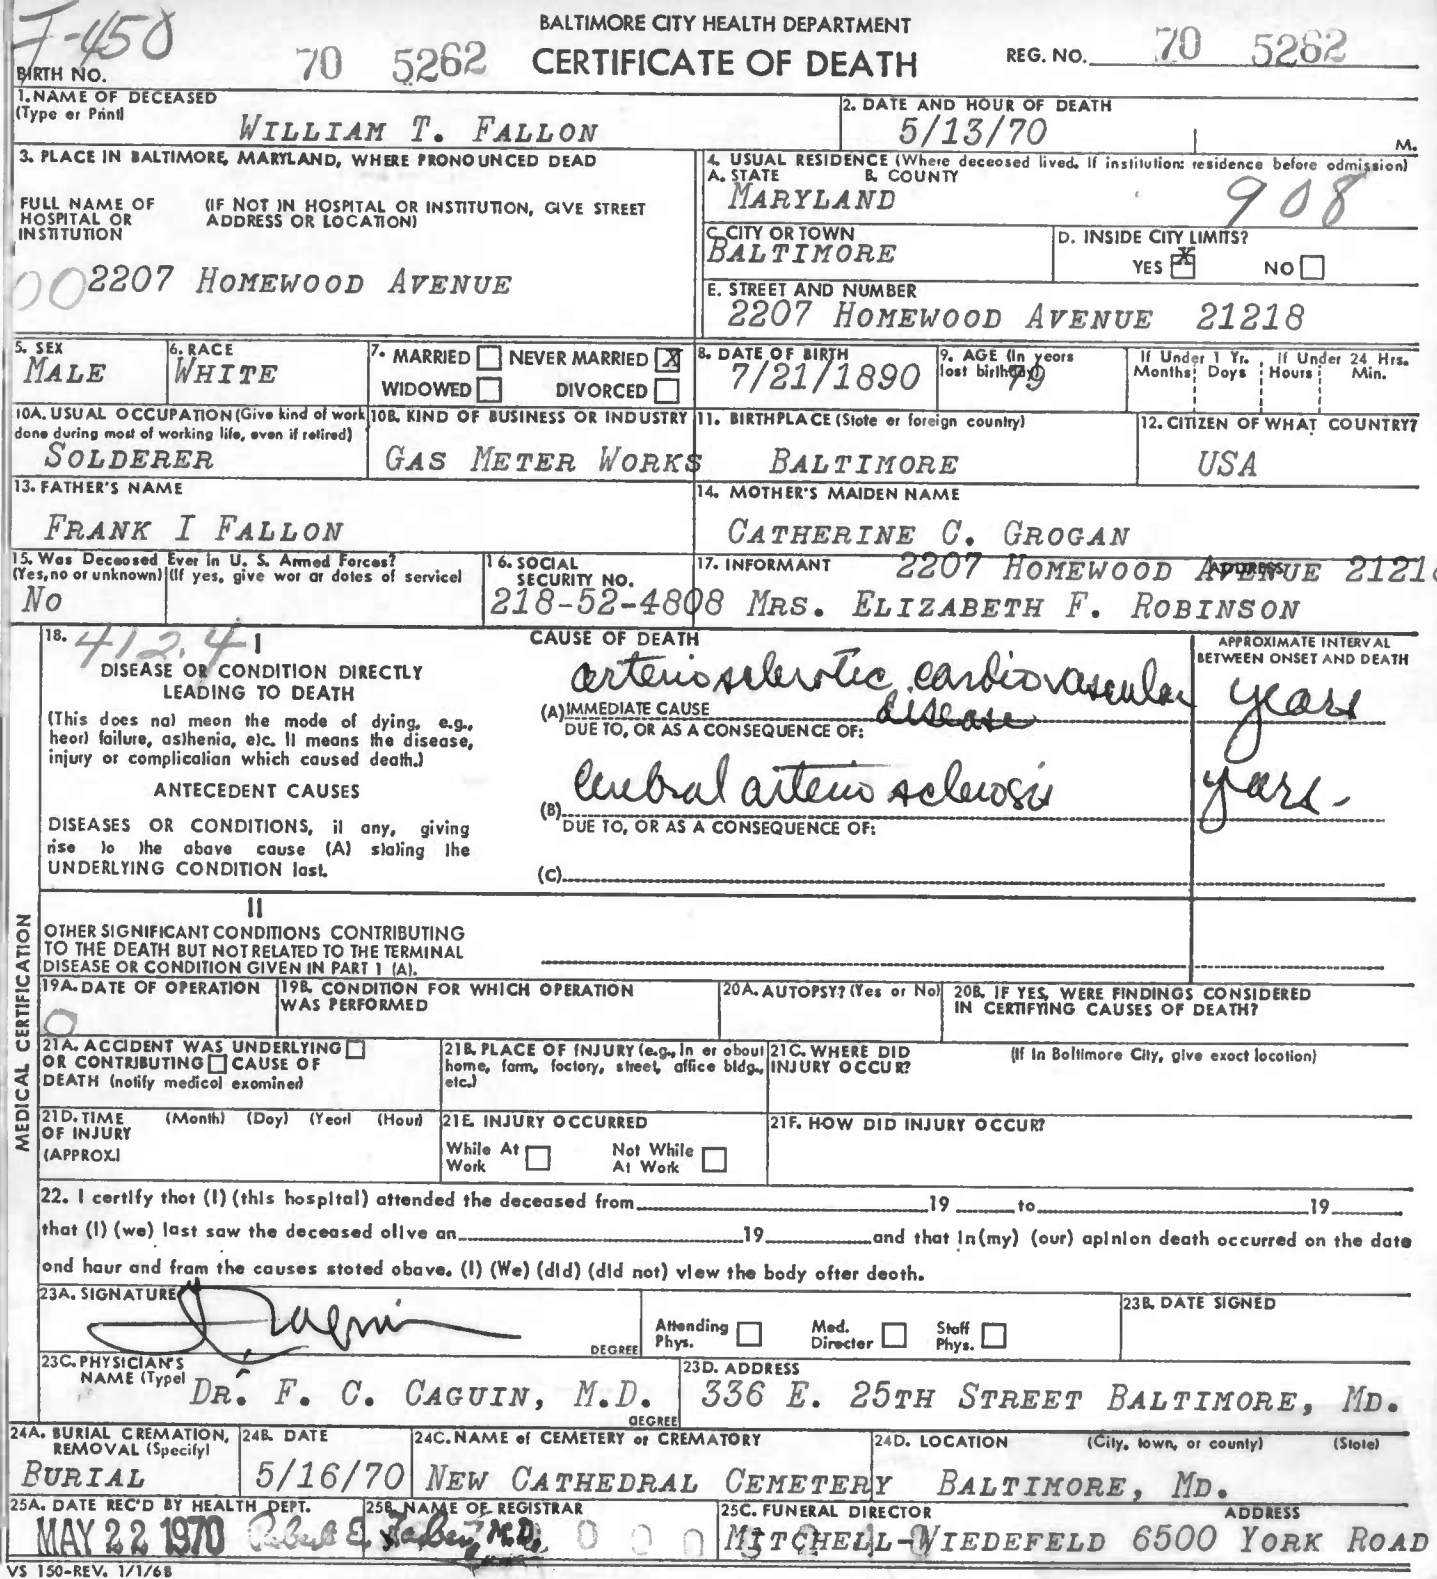 F-450
BALTIMORE CITY HEALTH DEPARTMENT
BIRTH NO.
70 5262
CERTIFICATE OF DEATH
REG. NO. 70 5262
1. NAME OF DECEASED
(Type or Print)
WILLIAM T. FALLON
2. DATE AND HOUR OF DEATH
5/13/70
M.
3. PLACE IN BALTIMORE, MARYLAND, WHERE PRONOUNCED DEAD
FULL NAME OF HOSPITAL OR INSTITUTION
(IF NOT IN HOSPITAL OR INSTITUTION, GIVE STREET
ADDRESS OR LOCATION)
00
2207 HOMEWOOD AVENUE
4. USUAL RESIDENCE (Where deceased lived. If institution: residence before admission)
A. STATE B. COUNTY
MARYLAND
908
C. CITY OR TOWN
BALTIMORE
D. INSIDE CITY LIMITS?
YES X NO
E. STREET AND NUMBER
2207 HOMEWOOD AVENUE 21218
5. SEX
MALE
6. RACE
WHITE
7. MARRIED NEVER MARRIED X
WIDOWED DIVORCED
8. DATE OF BIRTH
7/21/1890
9. AGE (In years
last birthday)
79
If Under 1 Yr.
Months Days
If Under 24 Hrs.
Hours Min.
10A. USUAL OCCUPATION (Give kind of work
done during most of working life, even if retired)
SOLDERER
10B. KIND OF BUSINESS OR INDUSTRY
GAS METER WORKS
11. BIRTHPLACE (State or foreign country)
BALTIMORE
12. CITIZEN OF WHAT COUNTRY?
USA
13. FATHER'S NAME
FRANK I FALLON
14. MOTHER'S MAIDEN NAME
CATHERINE C. GROGAN
15. Was Deceased Ever in U. S. Armed Forces?
(Yes, no or unknown) (If yes, give war or dates of service)
NO
16. SOCIAL
SECURITY NO.
218-52-4808
17. INFORMANT ADDRESS
2207 HOMEWOOD AVENUE 21218
MRS. ELIZABETH F. ROBINSON
MEDICAL CERTIFICATION
18. 412.4 I
DISEASE OR CONDITION DIRECTLY
LEADING TO DEATH
(This does not mean the mode of dying, e.g.,
heart failure, asthenia, etc. It means the disease,
injury or complication which caused death.)
ANTECEDENT CAUSES
DISEASES OR CONDITIONS, if any, giving
rise to the above cause (A) stating the
UNDERLYING CONDITION last.
CAUSE OF DEATH
APPROXIMATE INTERVAL
BETWEEN ONSET AND DEATH
arteriosclerotic cardiovascular
disease
years
(A) IMMEDIATE CAUSE
DUE TO, OR AS A CONSEQUENCE OF:
Cerebral arteriosclerosis
years-
(B)
DUE TO, OR AS A CONSEQUENCE OF:
(C)
II
OTHER SIGNIFICANT CONDITIONS CONTRIBUTING
TO THE DEATH BUT NOT RELATED TO THE TERMINAL
DISEASE OR CONDITION GIVEN IN PART 1 (A).
19A. DATE OF OPERATION
0
19B. CONDITION FOR WHICH OPERATION
WAS PERFORMED
20A. AUTOPSY? (Yes or No)
20B. IF YES, WERE FINDINGS CONSIDERED
IN CERTIFYING CAUSES OF DEATH?
21A. ACCIDENT WAS UNDERLYING
OR CONTRIBUTING CAUSE OF
DEATH (notify medical examiner)
21B. PLACE OF INJURY (e.g., in or about
home, farm, factory, street, office bldg.,
etc.)
21C. WHERE DID
INJURY OCCUR?
(If in Baltimore City, give exact location)
21D. TIME
OF INJURY
(APPROX.)
(Month) (Day) (Year) (Hour)
21E. INJURY OCCURRED
While At
Work
Not While
At Work
21F. HOW DID INJURY OCCUR?
22. I certify that (I) (this hospital) attended the deceased from 19 to 19
that (I) (we) last saw the deceased alive on 19 and that in (my) (our) opinion death occurred on the date
and hour and from the causes stated above. (I) (We) (did) (did not) view the body after death.
23A. SIGNATURE
DEGREE
Attending
Phys.
Med.
Director
Staff
Phys.
23B. DATE SIGNED
23C. PHYSICIAN'S
NAME (Type)
DR. F. C. CAGUIN, M.D.
DEGREE
23D. ADDRESS
336 E. 25TH STREET BALTIMORE, MD.
24A. BURIAL CREMATION,
REMOVAL (Specify)
BURIAL
24B. DATE
5/16/70
24C. NAME of CEMETERY or CREMATORY
NEW CATHEDRAL CEMETERY
24D. LOCATION (City, town, or county) (State)
BALTIMORE, MD.
25A. DATE REC'D BY HEALTH DEPT.
MAY 22 1970
25B. NAME OF REGISTRAR
Robert E. Farber, M.D.
25C. FUNERAL DIRECTOR ADDRESS
MITCHELL-WIEDEFELD 6500 YORK ROAD
VS 150-REV. 1/1/68